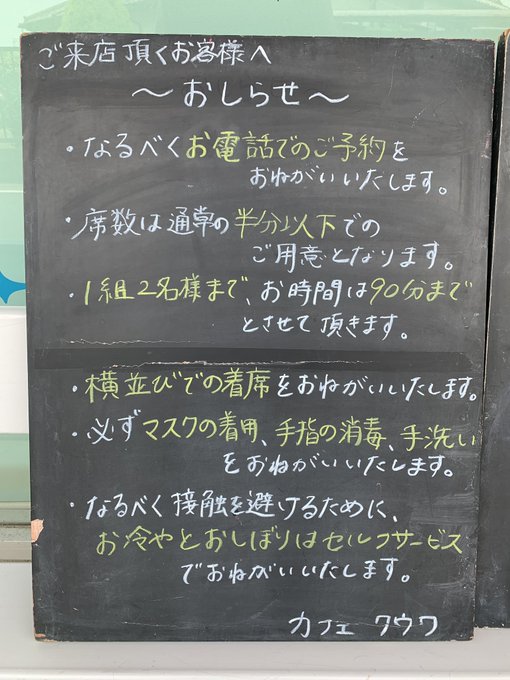 ご来店頂くお客様へ
～おしらせ～
・なるべくお電話でのご予約を
おねがいいたします。
・席数は通常の半分以下での
ご用意となります。
・1組2名様まで、お時間は90分まで
とさせて頂きます。
・横並びでの着席をおねがいいたします。
・必ずマスクの着用、手指の消毒、手洗い
をおねがいいたします。
・なるべく接触を避けるために、
お冷やとおしぼりはセルフサービス
でおねがいいたします。
カフェ クウワ